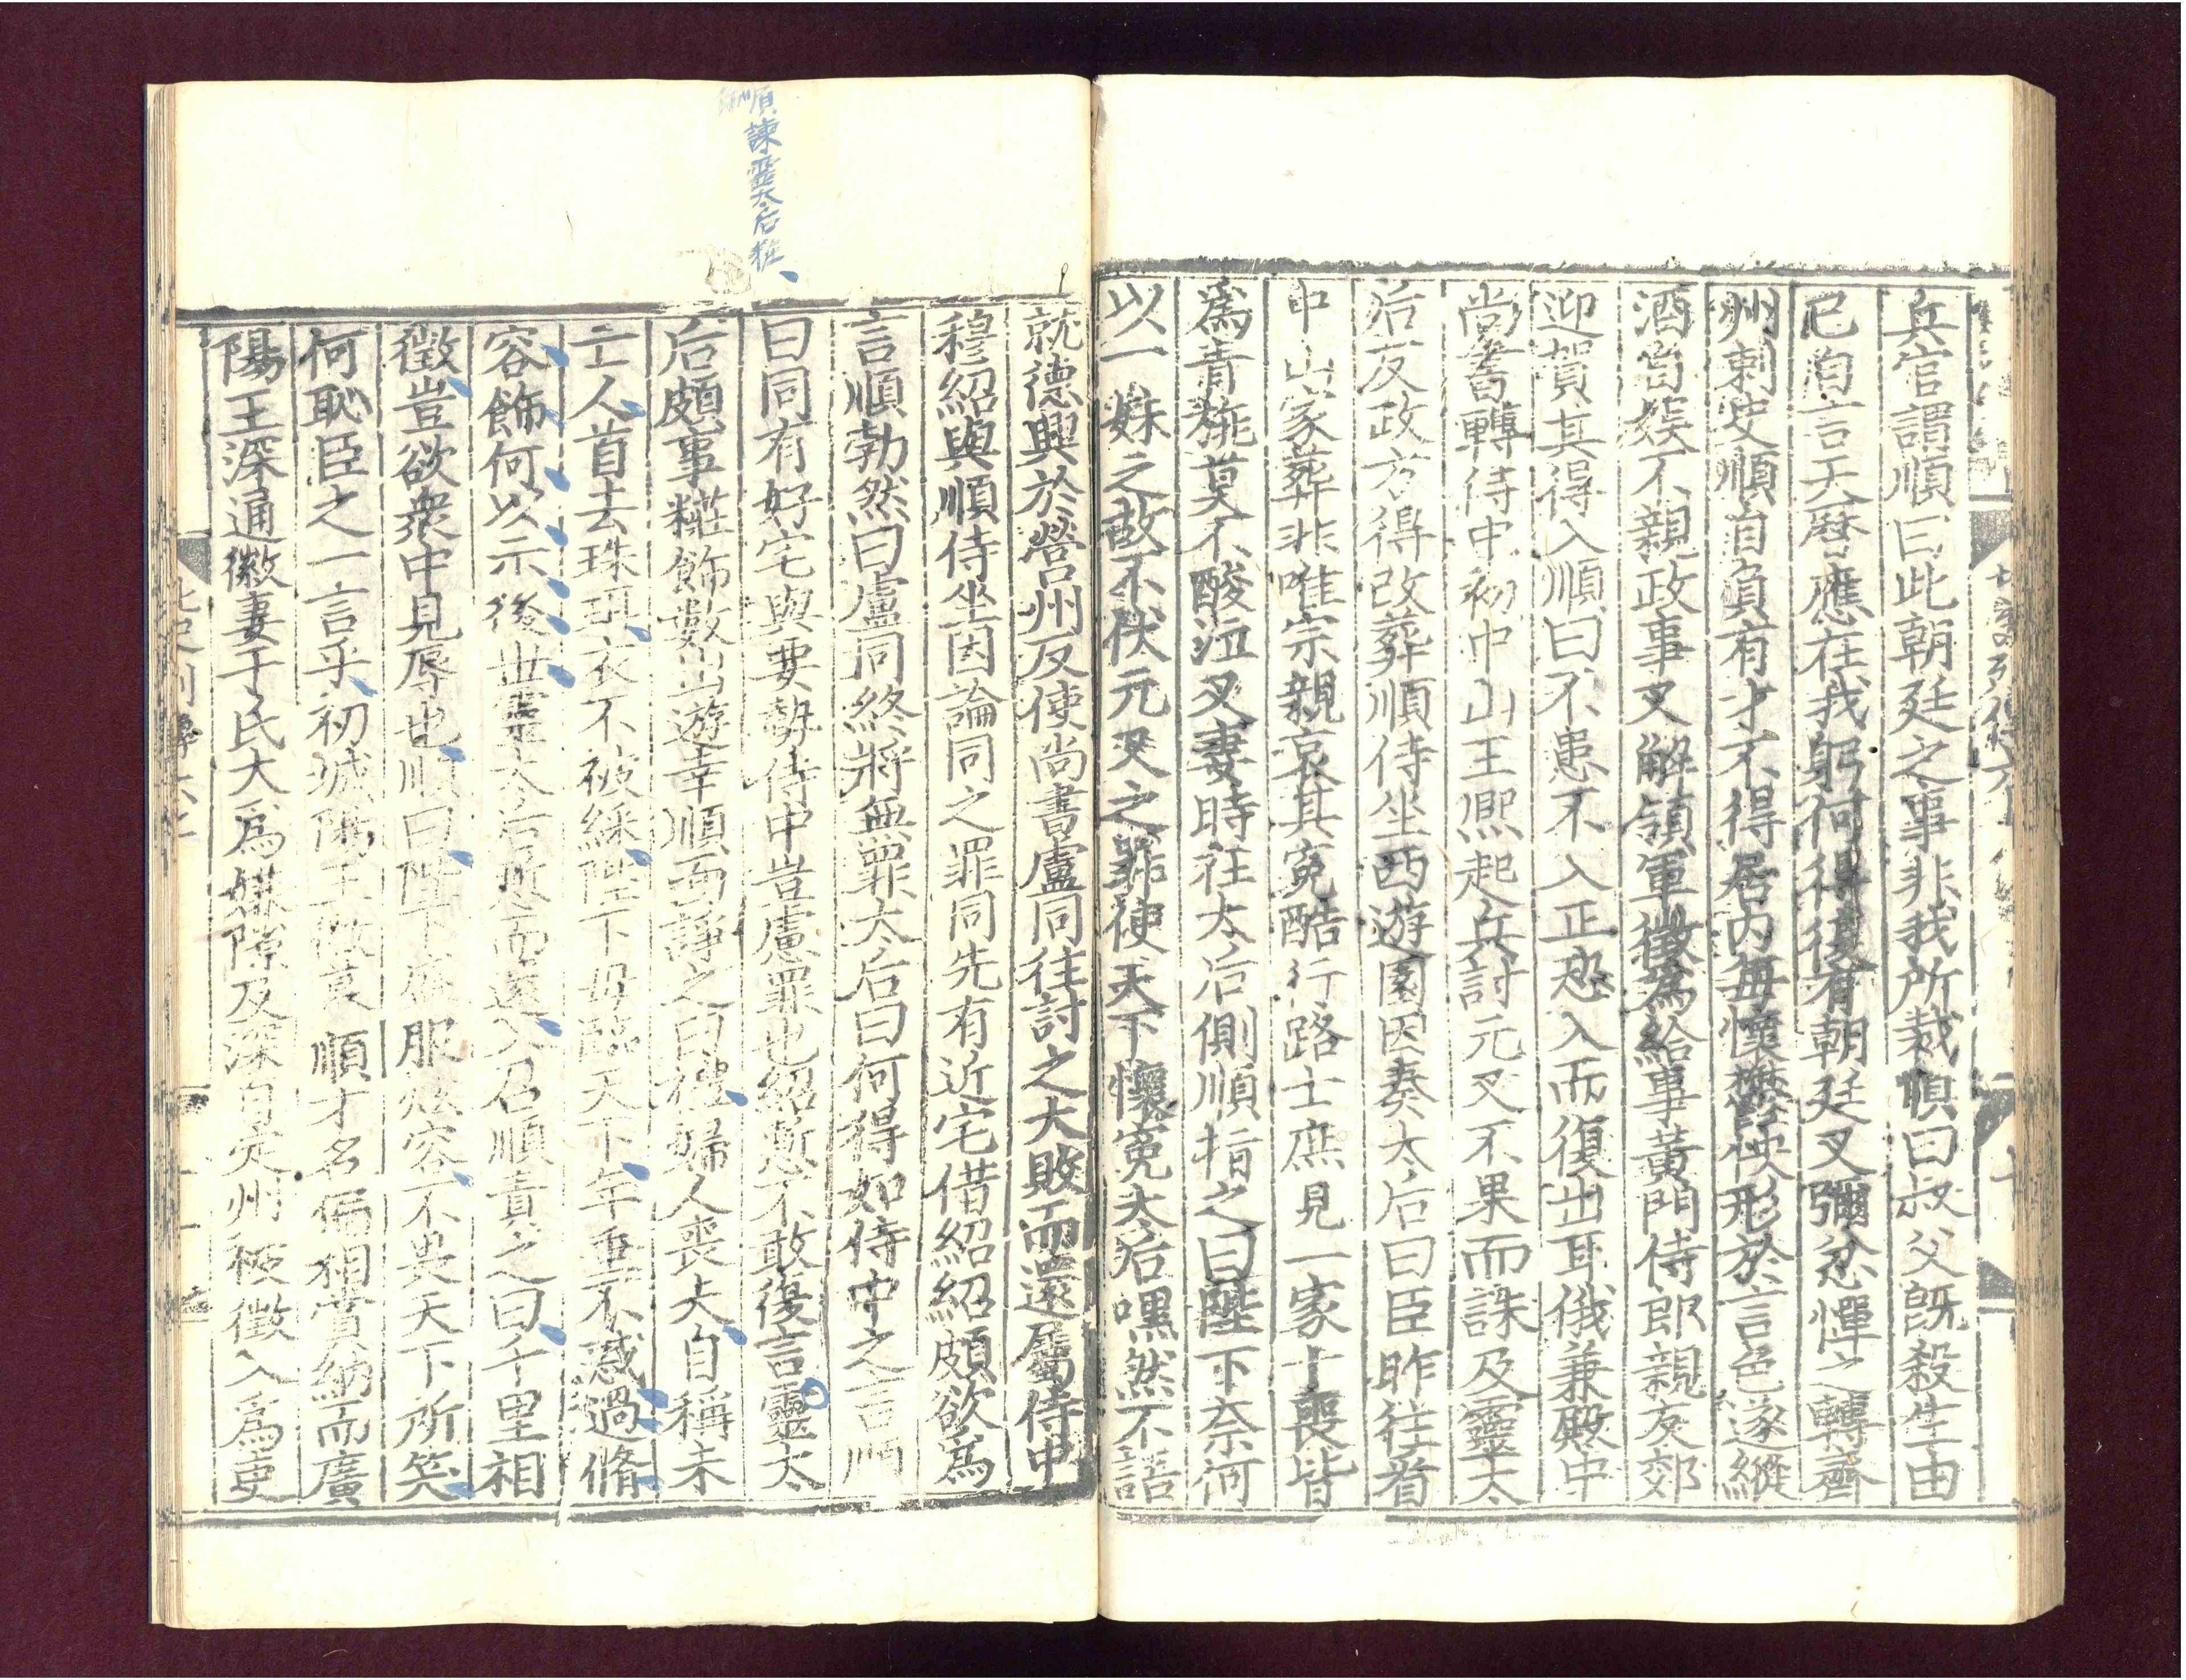 兵官謂順曰此朝廷之事非我所裁順曰叔父旣殺生由
已自言天曆應在我躬何得復有朝廷叉彌忿憚之轉齊
州刺史順自負有才不得居內每懷鬱怏形於言色遂縱
酒自娛不親政事叉解領軍徵爲給事黃門侍郎親友郊
迎賀其得入順曰不患不入正恐入而復出耳俄兼殿中
尚書轉侍中初中山王熙起兵討元叉不果而誅及靈太
后反政方得改葬順侍坐西遊園因奏太后曰臣昨往看
中山家葬非唯宗親哀其冤酷行路士庶見一家十喪皆
爲青旐莫不酸泣叉妻時在太后側順指之曰陛下奈何
以一妹之故不伏元叉之罪使天下懷冤太后嘿然不語
就德興於營州反使尚書盧同往討之大敗而還屬侍中
穆紹與順侍坐因論同之罪同先有近宅借紹紹頗欲爲
言順勃然曰盧同終將無罪太后曰何得如侍中之言順
曰同有好宅與要勢侍中豈慮罪也紹慙不敢復言靈太
后頗事糚飾數出遊幸順面諍之曰禮婦人喪夫自稱未
亡人首去珠珥衣不被綵陛下母臨天下年垂不惑過脩
容飾何以示後世靈太后慙而還入召順責之曰千里相
徵豈欲衆中見辱也順曰陛下盛服炫容不畏天下所笑
何恥臣之一言乎初城陽王徽慕順才名偏相賞納而廣
陽王深通徽妻于氏大爲嫌隙及深自定州被徵入爲吏
順諫靈太后糚